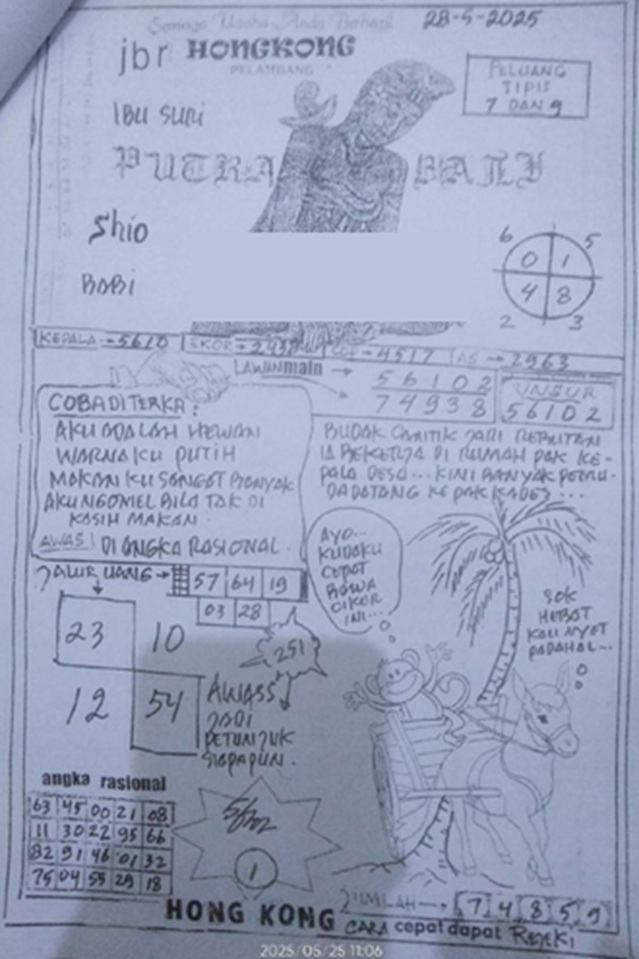 Semoga Usaha Anda Berhasil
28-5-2025
jbr HONGKONG
PELAMBANG
PELUANG
TIPIS
7 DAN 9
IBU SURI
PUTRA BALI
Shio
BABI
6 5
0 1
4 8
2 3
KEPALA = 5610
EKOR =
COP = 4517
AS → 2963
LAWAN main →
56102
74938
UNSUR
56102
COBA DITERKA:
AKU ADALAH HEWAN
WARNAKU PUTIH
MAKANKU SANGAT BANYAK
AKU NGOMEL BILA TAK DI
KASIH MAKAN.
AWAS! DI ANGKA RASIONAL.
BUDAK CANTIK DARI
IA BEKERJA DI RUMAH PAK KE-
PALA DESA... KINI BANYAK PEMU-
DA DATANG KE PAK KADES...
JALUR UANG → 57 64 19
03 28
23 10
12 54
251
AWASS
JADI
PETUNJUK
SIAPAPUN.
AYO...
KUDAKU
CEPAT
BAWA
CIKAR
INI...
SOK
HEBAT
KAU NYET
PADAHAL...
angka rasional
63 45 00 21 08
11 30 22 95 66
82 91 46 01 32
75 04 55 29 18
1
JUMLAH → 7 4 8 5 9
HONG KONG CARA cepat dapat Rejeki
2025/05/25 11:06